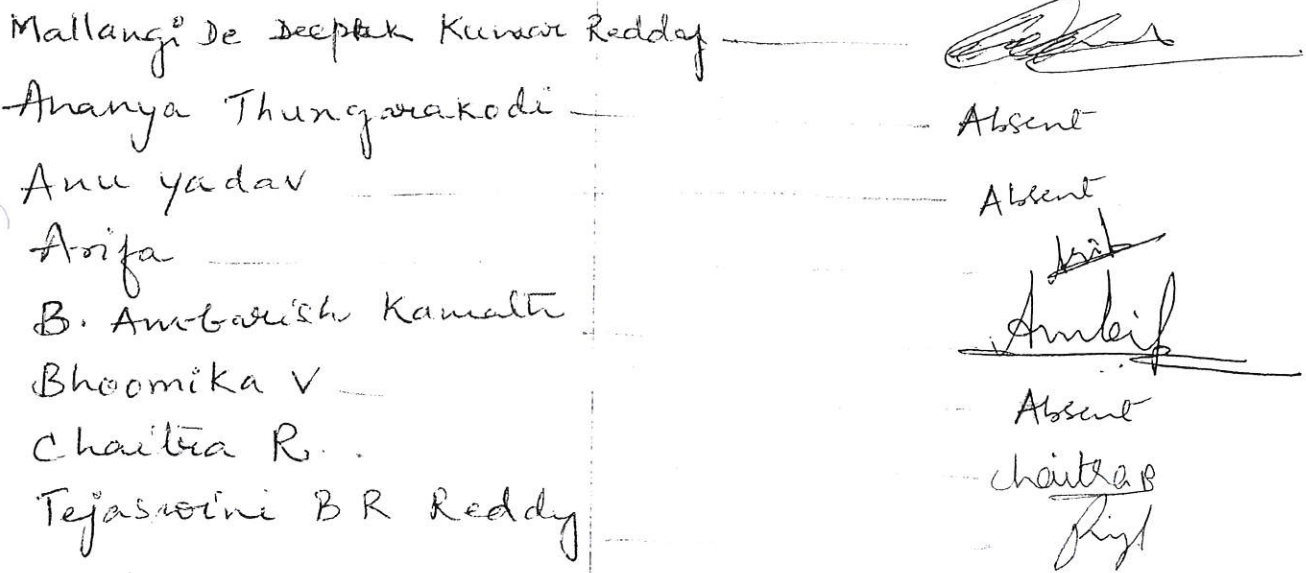 Mallangi De Deepak Kumar Reddy
Ananya Thungarakodi Absent
Anu yadav Absent
Arifa
B. Ambarish Kamath
Bhoomika V Absent
Chaitra R. chaitra R
Tejaswini B R Reddy